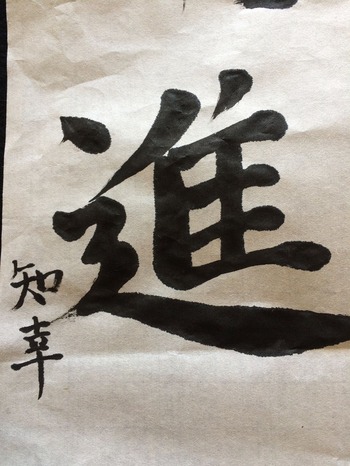 進
知幸